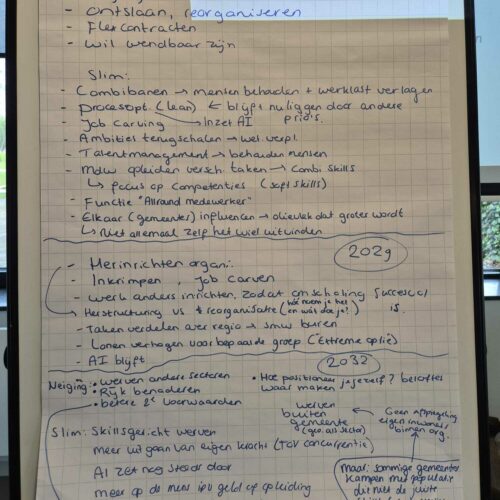 - ontslaan, reorganiseren
- Flexcontracten
- wil wendbaar zijn
Slim:
- Combibanen → mensen behouden + werklast verlagen
- procesopt. (lean) ← blijft nu liggen door andere prio's.
- Job carving → Inzet AI
- Ambities terugschalen → wet. verpl.
- Talentmanagement → behouden mensen
- mdw opleiden versch. taken → Combi skills
↳ focus op competenties (soft skills)
- Functie "Allround medewerker"
- Elkaar (gemeenten) influencen → olievlek dat groter wordt
↳ Niet allemaal zelf het wiel uitvinden
2029
- Herinrichten organi.
- Inkrimpen, Job carven
- werk anders inrichten, zodat omscholing succesvol is.
↳ Herstructuring vs reorganisatie (hoe noem je het en wat doe je?)
- Taken verdelen over regio → smw buren
- Lonen verhogen voor bepaalde groep ("Extreme optie)
- AI blijft
2032
Neiging: • werven andere sectoren
• Rijk benaderen
• betere 2e voorwaarden
• Hoe positioneer je jezelf? beloftes waar maken
werven buiten gemeente
Geen afspiegeling eigen inwoners binnen org.
Slim: Skillsgericht werven
meer uit gaan van eigen kracht (TOV concurrentie)
AI zet nog steeds door
meer op de mens ipv geld of opleiding
Maar: sommige gemeenten
kampen met populatie
die niet de juiste